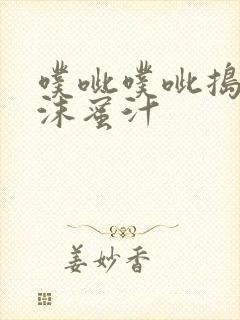 噗呲噗呲捣
沫蜜汁
姜妙香